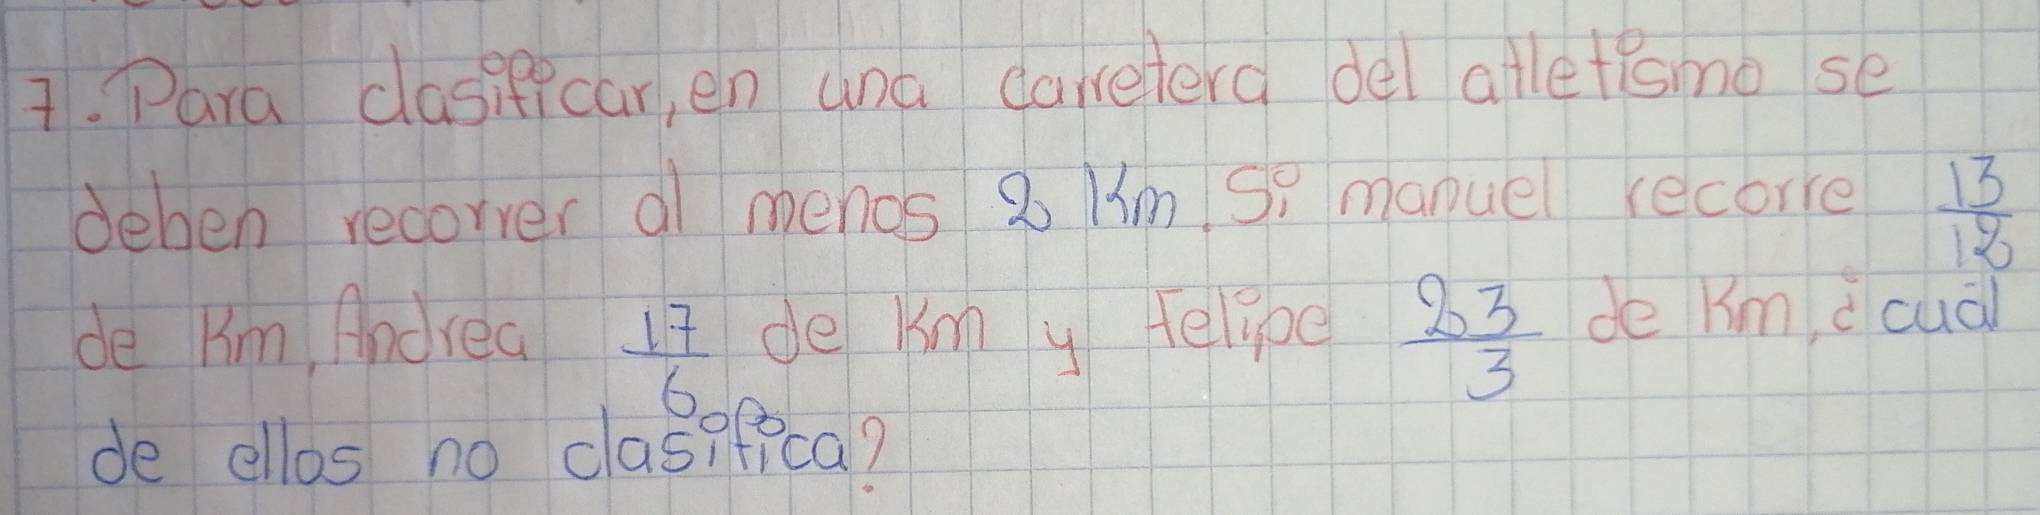 7. Para clasificar, en una carretera del atletismo se
deben recorrer al menos 2 Km. Si manuel recorre 13/12
de Km, Andrea 17/6 de Km y Felipe 23/3 de Km, ¿cuál
de ellos no clasifica?